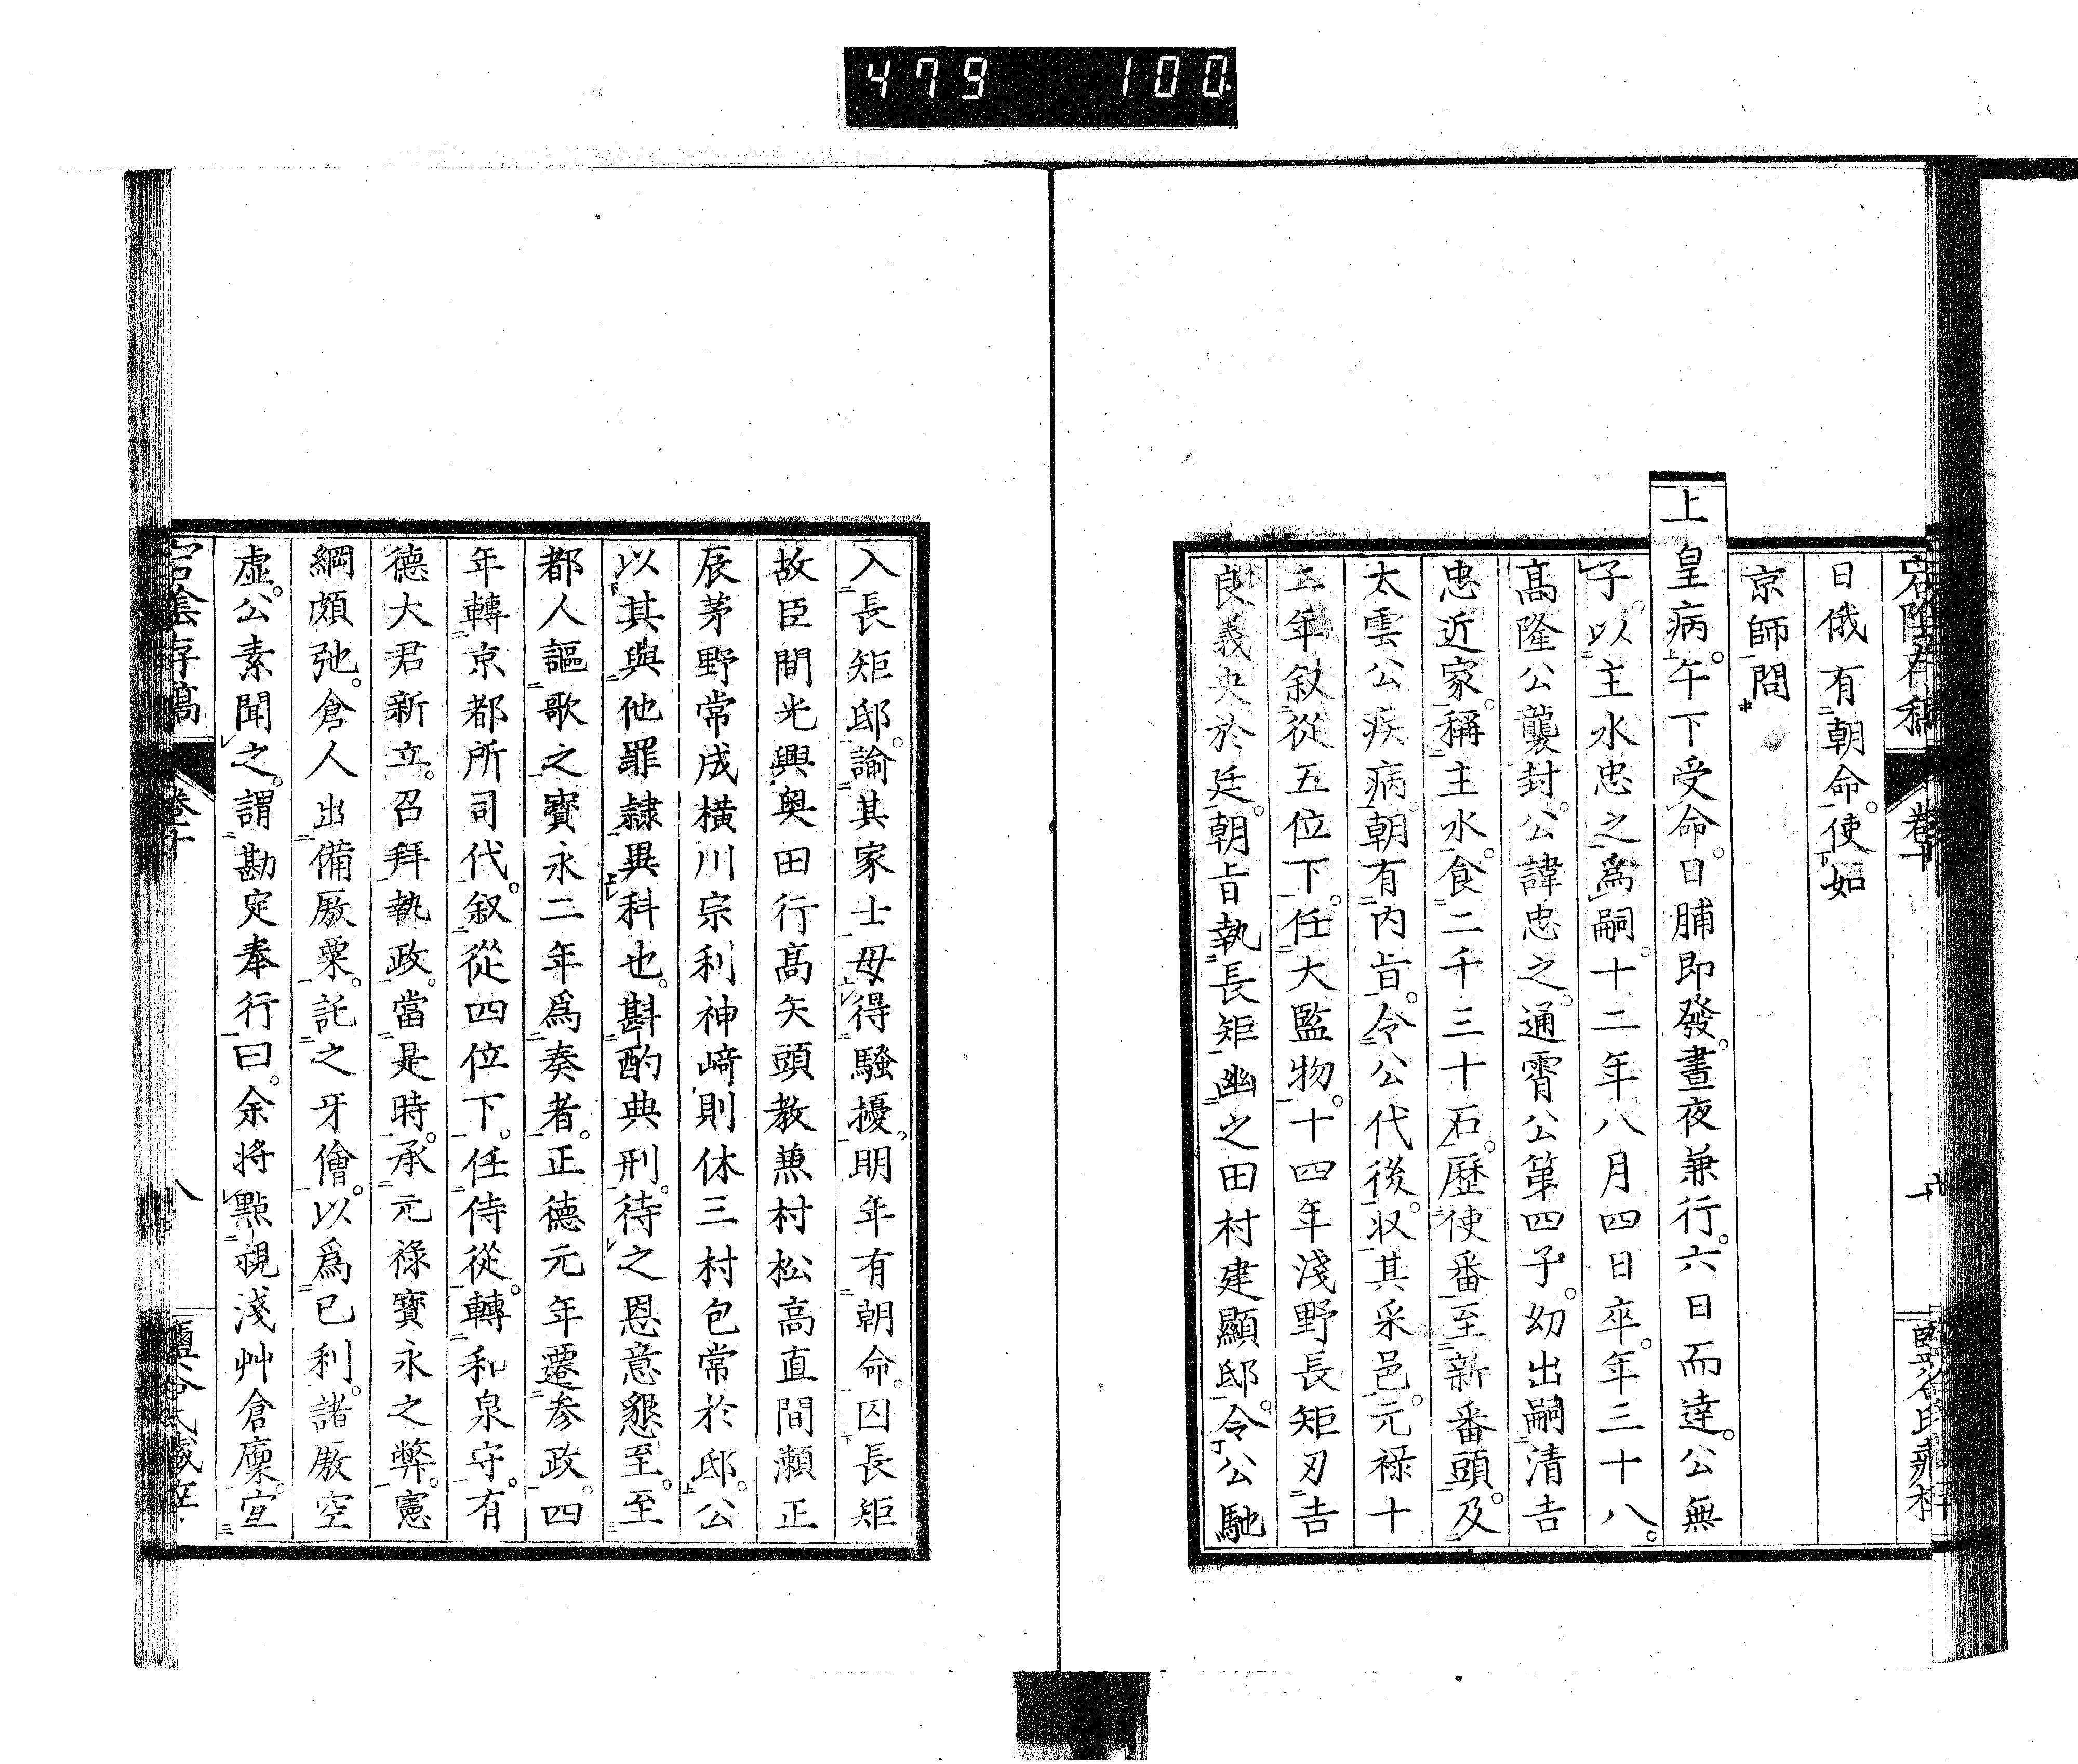 479 100
日俄有朝命。使如
京師問
上皇病。午下受命。日脯即發。晝夜兼行。六日而達。公無
子。以主水忠之爲嗣。十二年八月四日卒。年三十八。
高隆公襲封。公諱忠之。通霄公第四子。幼出嗣清吉
忠近家。稱主水。食二千三十石。歷使番至新番頭。及
太雲公疾病。朝有內旨。令公代後。収其采邑。元祿十
二年叙從五位下。任大監物。十四年淺野長矩刃吉
良義央於廷。朝旨執長矩幽之田村建顯邸。令公馳
入長矩邸。諭其家士毋得騷擾。明年有朝命。囚長矩
故臣間光興奥田行高矢頭教兼村松高直間瀬正
辰茅野常成横川宗利神﨑則休三村包常於邸。公
以其與他罪隷異科也。斟酌典刑。待之恩意懇至。至
都人謳歌之寶永二年爲奏者。正德元年遷参政。四
年轉京都所司代。叙從四位下。任侍從。轉和泉守。有
德大君新立。召拜執政。當是時。承元祿寶永之弊。憲
綱頗弛。倉人出備廒粟。託之牙儈。以爲已利。諸廒空
虛。公素聞之。謂勘定奉行曰。余將點視淺艸倉廩。宜
宕陰存稿 卷十 八